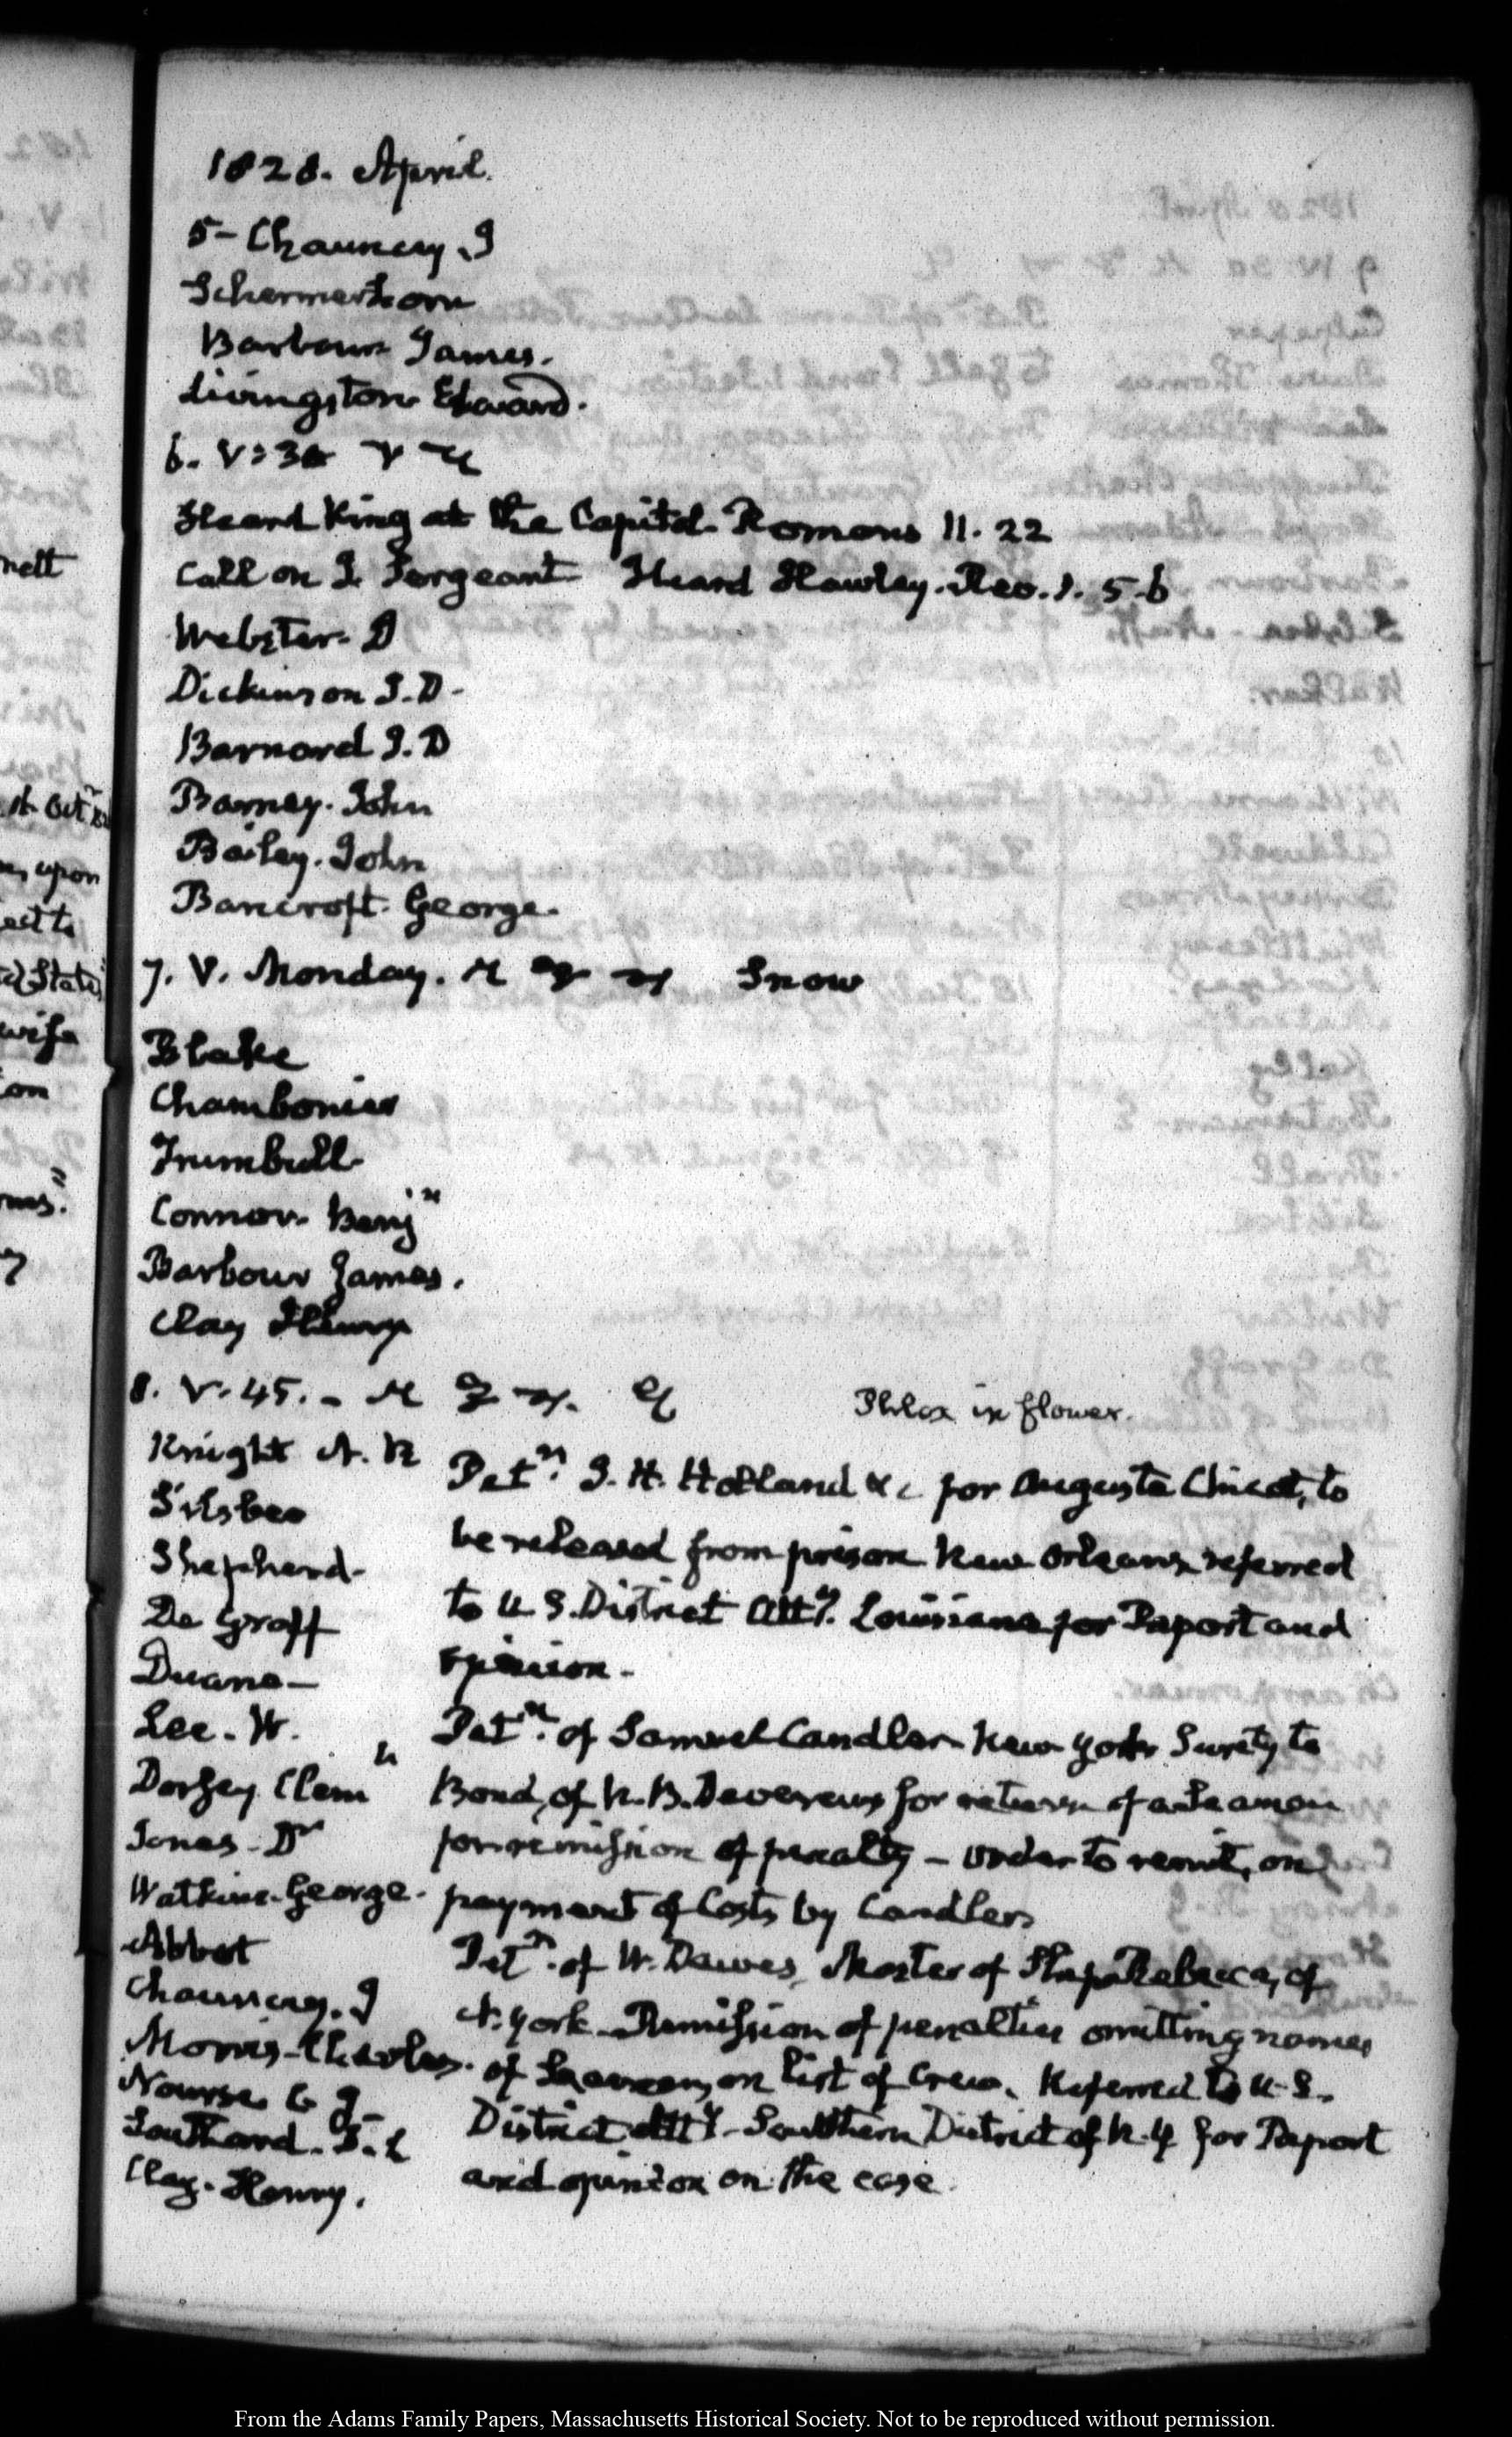 1828. April.
5- Chauncey. I
Schermerhorn
Barbour James.
Livingston Edward.
6. V:30
Heard King at the Capitol. Romans 11. 22
Call on J. Sergeant Heard Hawley. Rev. 1. 5-6
Webster. D
Dickinson J. D-
Barnard I. D
Barney. John
Bailey. John
Bancroft. George.
7. V. Monday. Snow
Blake
Trumbull
Connor Benjn
Barbour James.
Clay Henry
8. V. 45. -
Phlox in flower.
Knight N. R
Silsbee
Shepherd-
De Graff
Duane-
Lee. W.
Dorsey Clem
Jones. Dr
Watkins. George.
Abbot
Chauncey. I
Morris-Charles.
Nourse
Southard. S. L
Clay. Henry.
Petn. J. H. Holland &c for Auguste to
be released from prison New Orleans referred
to U S. District Atty. Louisiana for Report and
opinion-
Petn. of Samuel Candler New York Surety to
Bond, of N. B. Devereux for return of a Seaman
for remission of penalty - order to remit, on
payment of Costs by Candler
Petn. of W. Dawes, Master of Ship Rebecca, of
N. York. Remission of penalties omitting names
of Seamen, on list of Crew. Referred to U. S.
District Atty- Southern District of N. Y for Report
and opinion on the case.
nett
st. Octr
upon
ect to
States
wife
ion
From the Adams Family Papers, Massachusetts Historical Society. Not to be reproduced without permission.